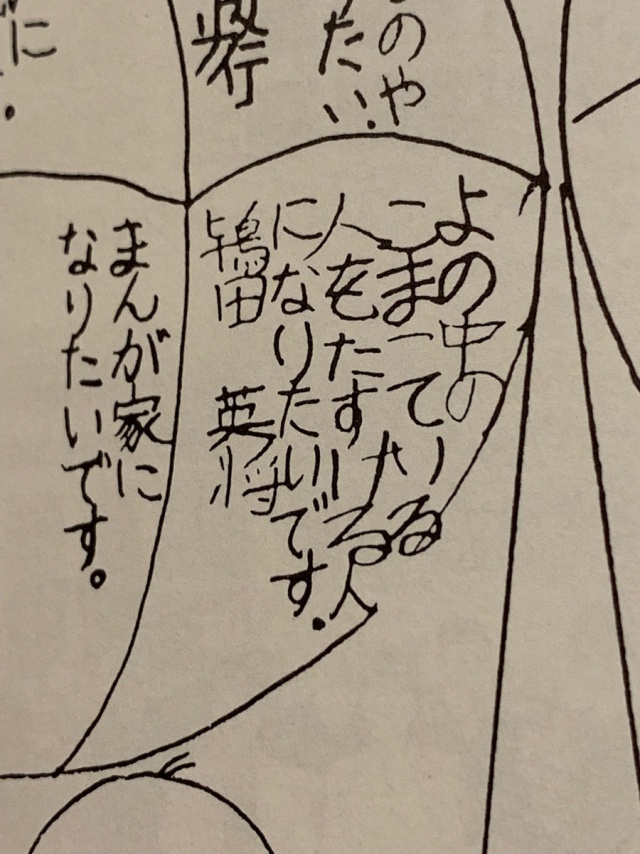 のや
たい.
に
よの中の
こまっている
人をたすける人
になりたいです.
鴇田 英将
まんが家に
なりたいです。